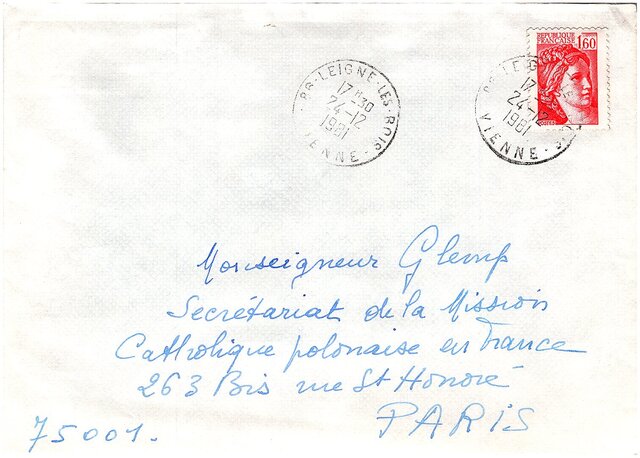 RÉPUBLIQUE
FRANÇAISE 1,60
PP-LEIGNE-LES-BOIS
17H30
24-12
1981
VIENNE
17
24-12
1981
VIENNE
Monseigneur Glemp
Secrétariat de la Mission
Catholique polonaise en France
263 Bis rue St Honoré
PARIS
75001.